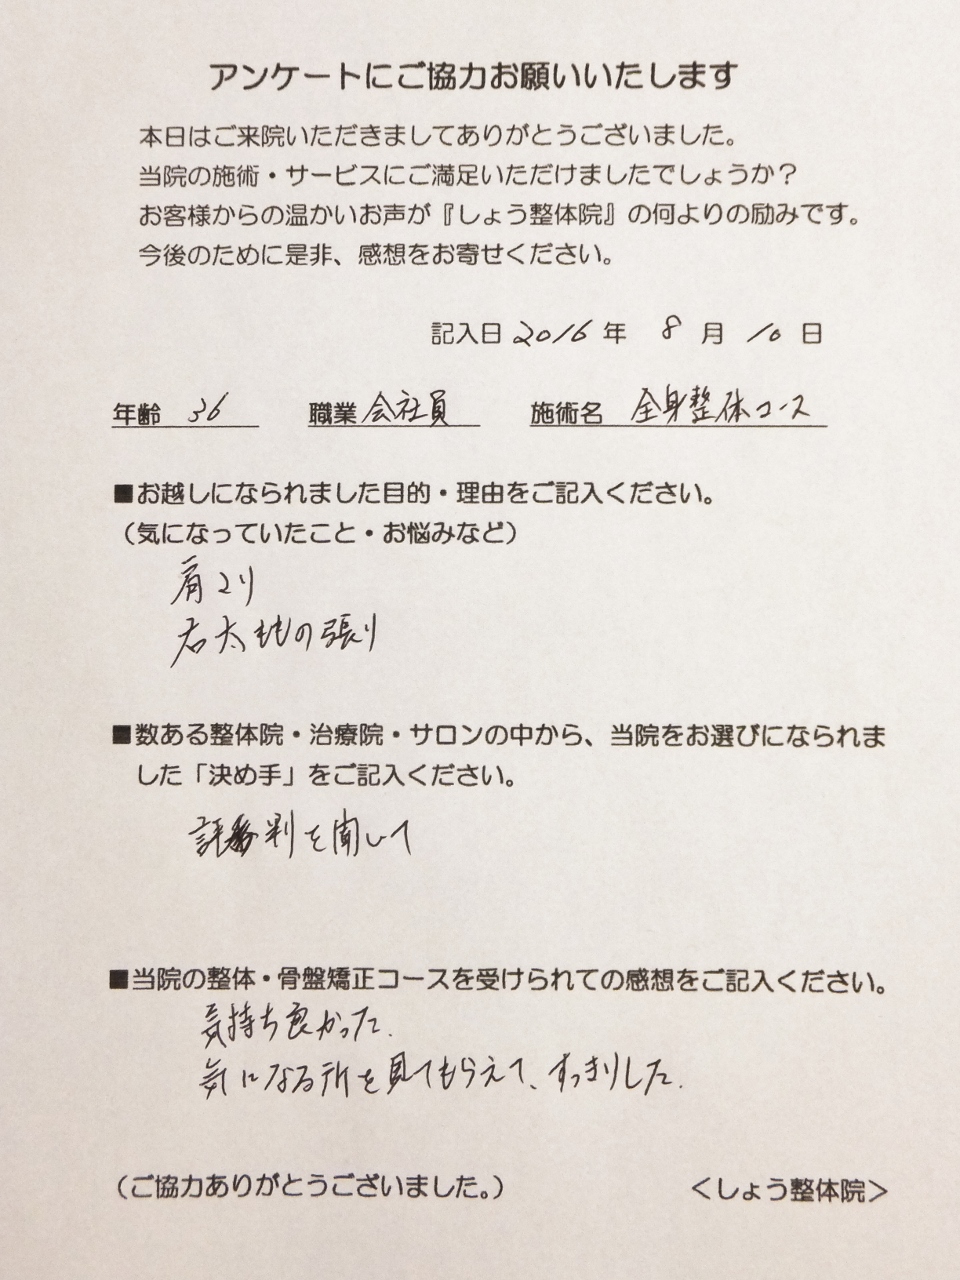 アンケートにご協力お願いいたします
本日はご来院いただきましてありがとうございました。
当院の施術・サービスにご満足いただけましたでしょうか？
お客様からの温かいお声が『しょう整体院』の何よりの励みです。
今後のために是非、感想をお寄せください。
記入日 2016 年 8 月 10 日
年齢 36 職業 会社員 施術名 全身整体コース
■お越しになられました目的・理由をご記入ください。
（気になっていたこと・お悩みなど）
肩コリ
右太ももの張り
■数ある整体院・治療院・サロンの中から、当院をお選びになられま
した「決め手」をご記入ください。
評判を聞いて
■当院の整体・骨盤矯正コースを受けられての感想をご記入ください。
気持ち良かった.
気になる所を見てもらえて、すっきりした.
（ご協力ありがとうございました。） ＜しょう整体院＞